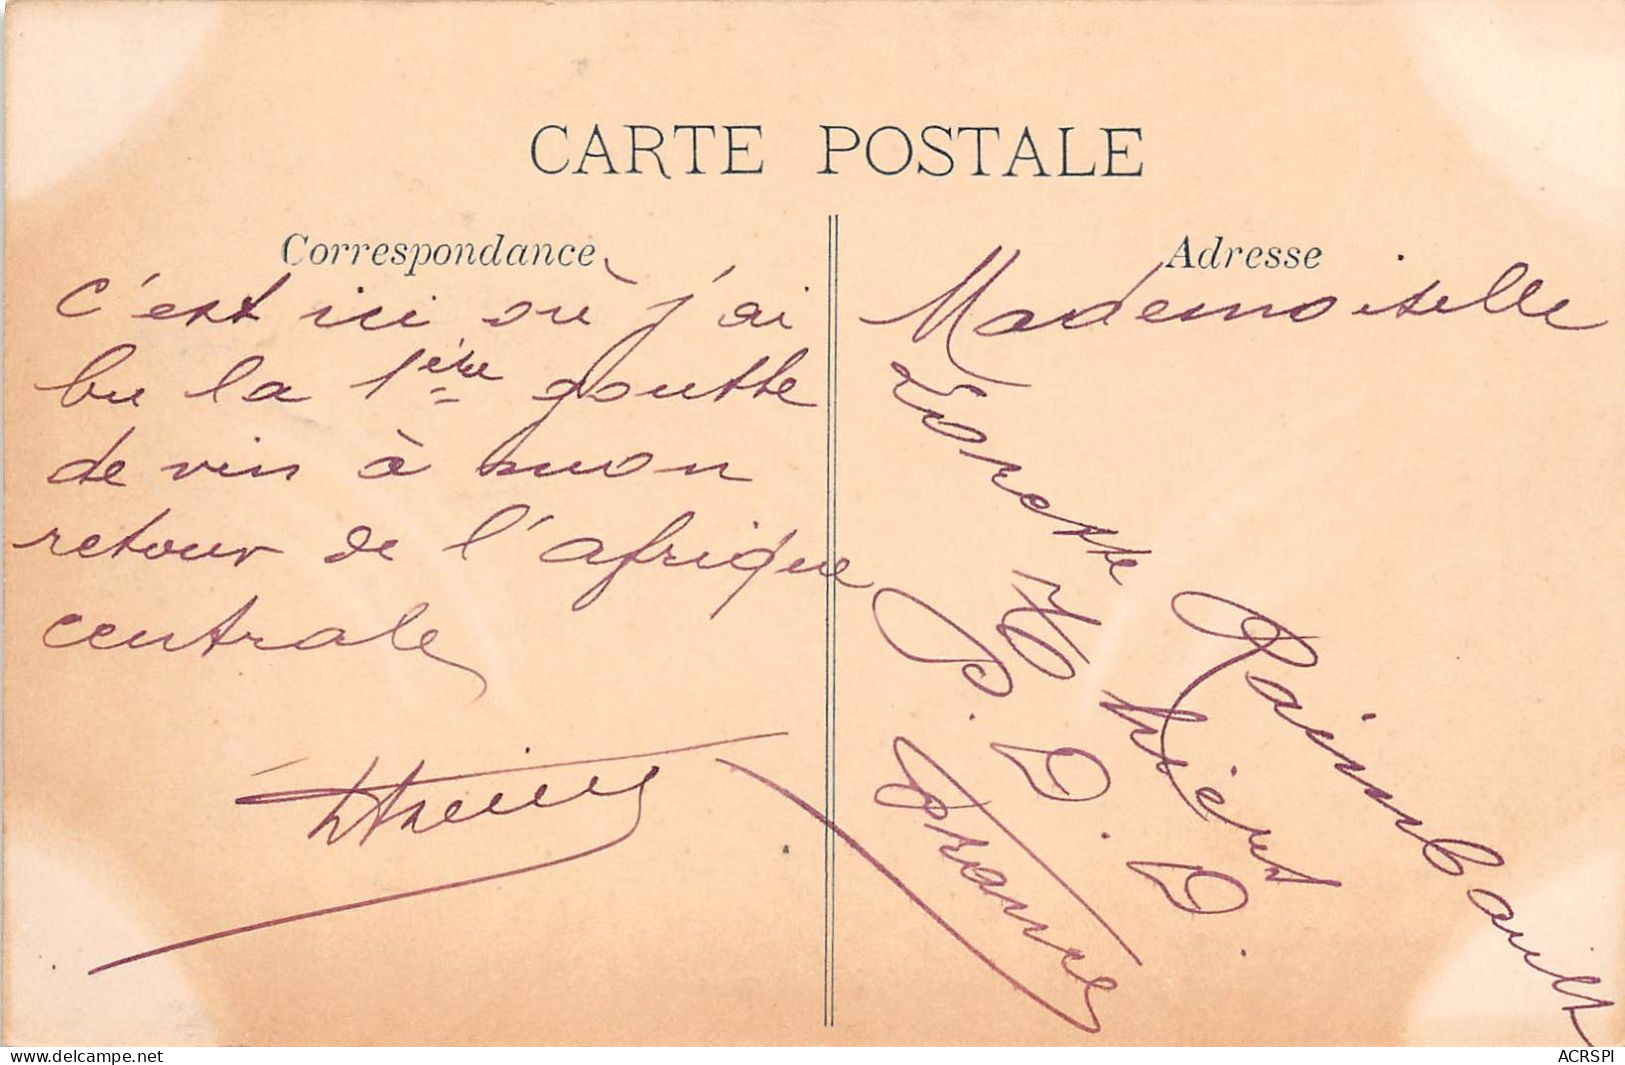 CARTE POSTALE
Correspondance
c'est ici où j'ai
bu la 1ère goutte
de vin à mon
retour de l'afrique
centrale
Adresse
Mademoiselle
Raimbault
Thiers
P. D. D.
France
www.delcampe.net
ACRSPI